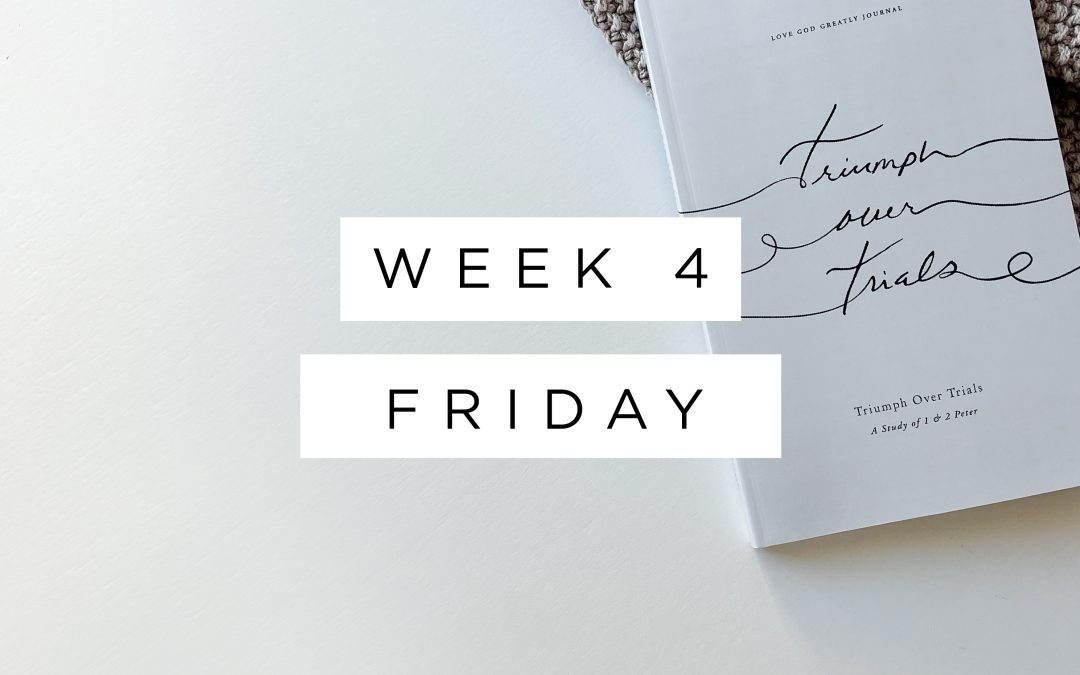 LOVE GOD GREATLY JOURNAL
Triumph
over
Trials
WEEK 4
FRIDAY
Triumph Over Trials
A Study of 1 & 2 Peter